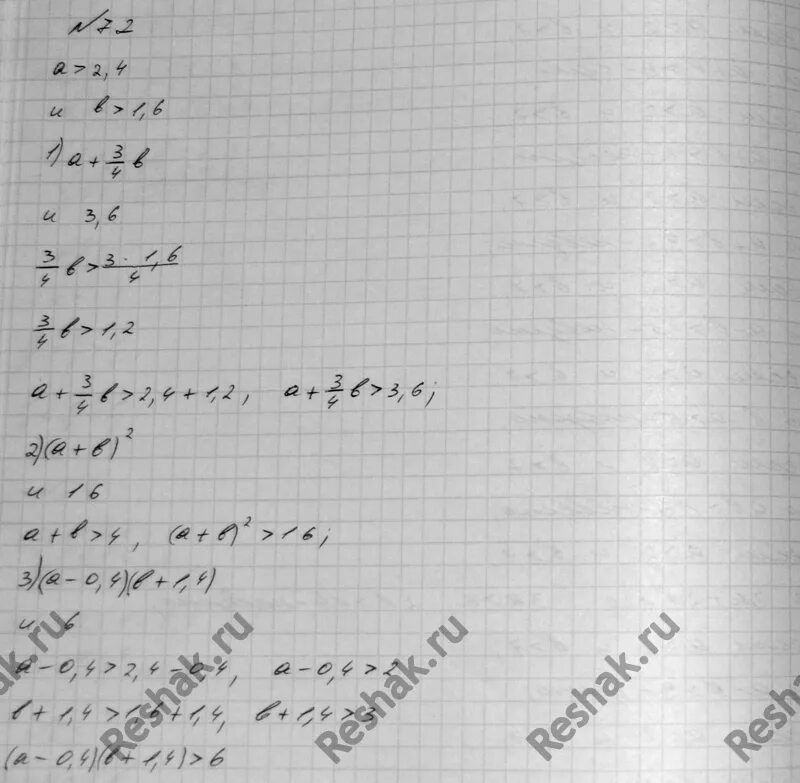 №72
a > 2,4
и в > 1,6
1) a + 3/4 в
и 3,6
3/4 в > 3 · 1,6 / 4
3/4 в > 1,2
a + 3/4 в > 2,4 + 1,2, a + 3/4 в > 3,6;
2) (a + в)²
и 16
a + в > 4, (a + в)² > 16;
3) (a - 0,4)(в + 1,4)
и 6
a - 0,4 > 2,4 - 0,4, a - 0,4 > 2
в + 1,4 > 1,6 + 1,4, в + 1,4 > 3
(a - 0,4)(в + 1,4) > 6
Reshak.ru
Reshak.ru
Reshak.ru
Reshak.ru
Reshak.ru